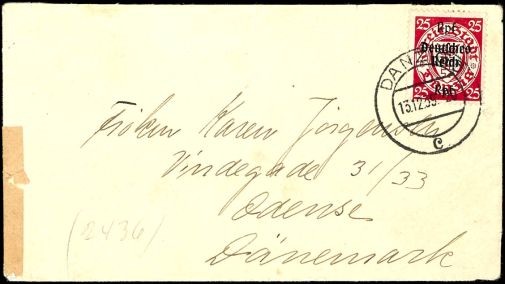 25 Rpf 25
Deutsches
Reich
25 Rpf 25
DANZIG
13.12.39
c
Fröken Karen Jørgensen
Vindegade 31/33
Odense
Dänemark
(2436)